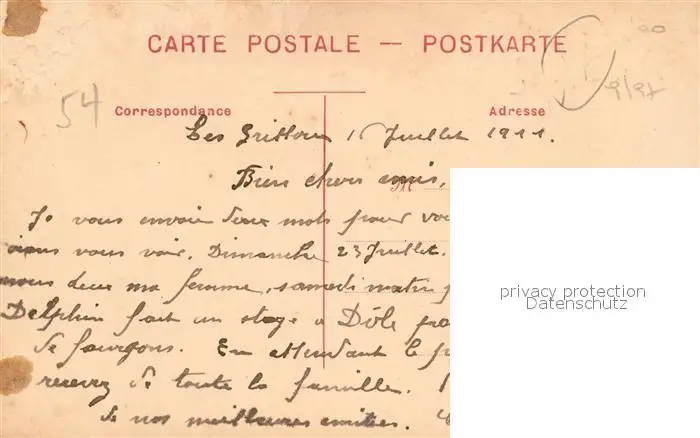 CARTE POSTALE — POSTKARTE
54
9/97
Correspondance Adresse
Les 16 Juillet 1911.
Bien chers amis,
Je vous envoie deux mots pour vou
vous voir. Dimanche 23 Juillet.
nous deux ma femme, samedi matin p
Delphin fait un stage a Dôle po
de fourgons. En attendant le
recevez de toute la famille.
de nos meilleures amitiés.
privacy protection
Datenschutz